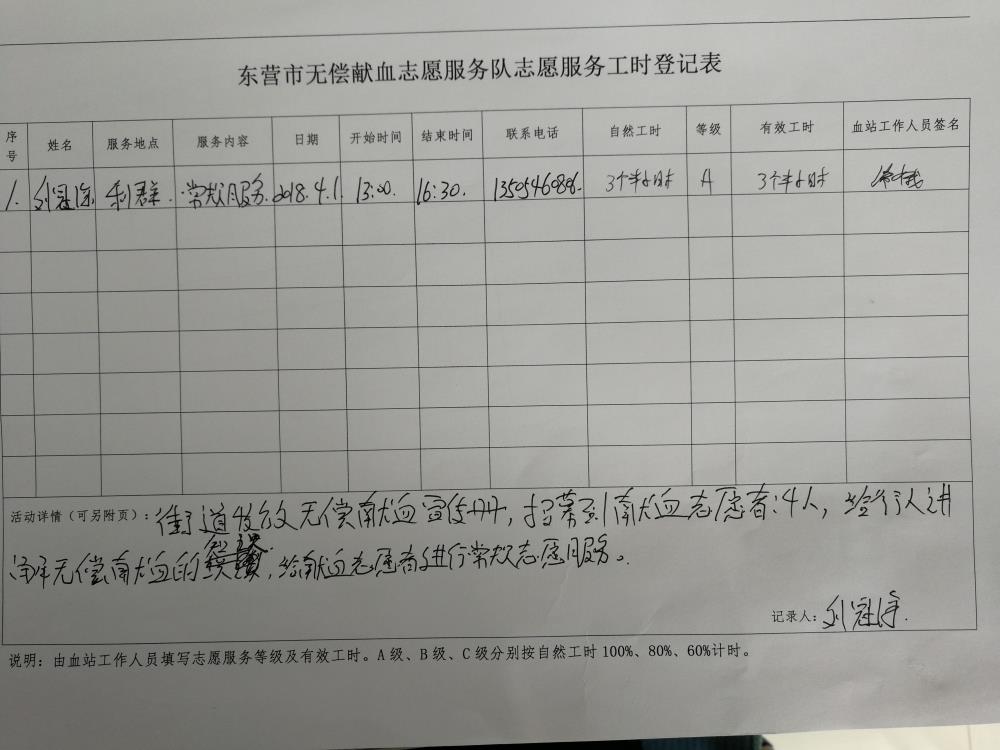 东营市无偿献血志愿服务队志愿服务工时登记表
序号 姓名 服务地点 服务内容 日期 开始时间 结束时间 联系电话 自然工时 等级 有效工时 血站工作人员签名
1. 刘冠 利群. 常规服务. 2018.4.1. 13:00. 16:30. 3个半小时 A 3个半小时
活动详情（可另附页）：街道发放无偿献血宣传册，招募到献血志愿者:4人，给行人讲
解无偿献血的知识，给献血志愿者进行常规志愿服务。
记录人：刘冠
说明：由血站工作人员填写志愿服务等级及有效工时。A 级、B 级、C 级分别按自然工时 100%、80%、60%计时。